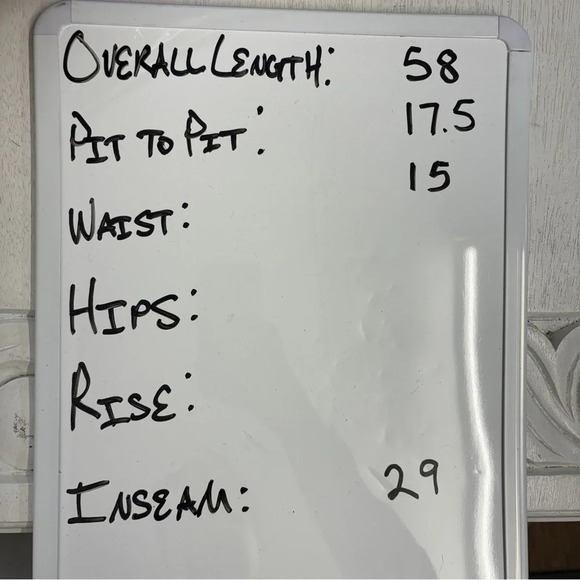 OVERALL LENGTH: 58
PIT TO PIT: 17.5
WAIST: 15
HIPS:
RISE:
INSEAM: 29